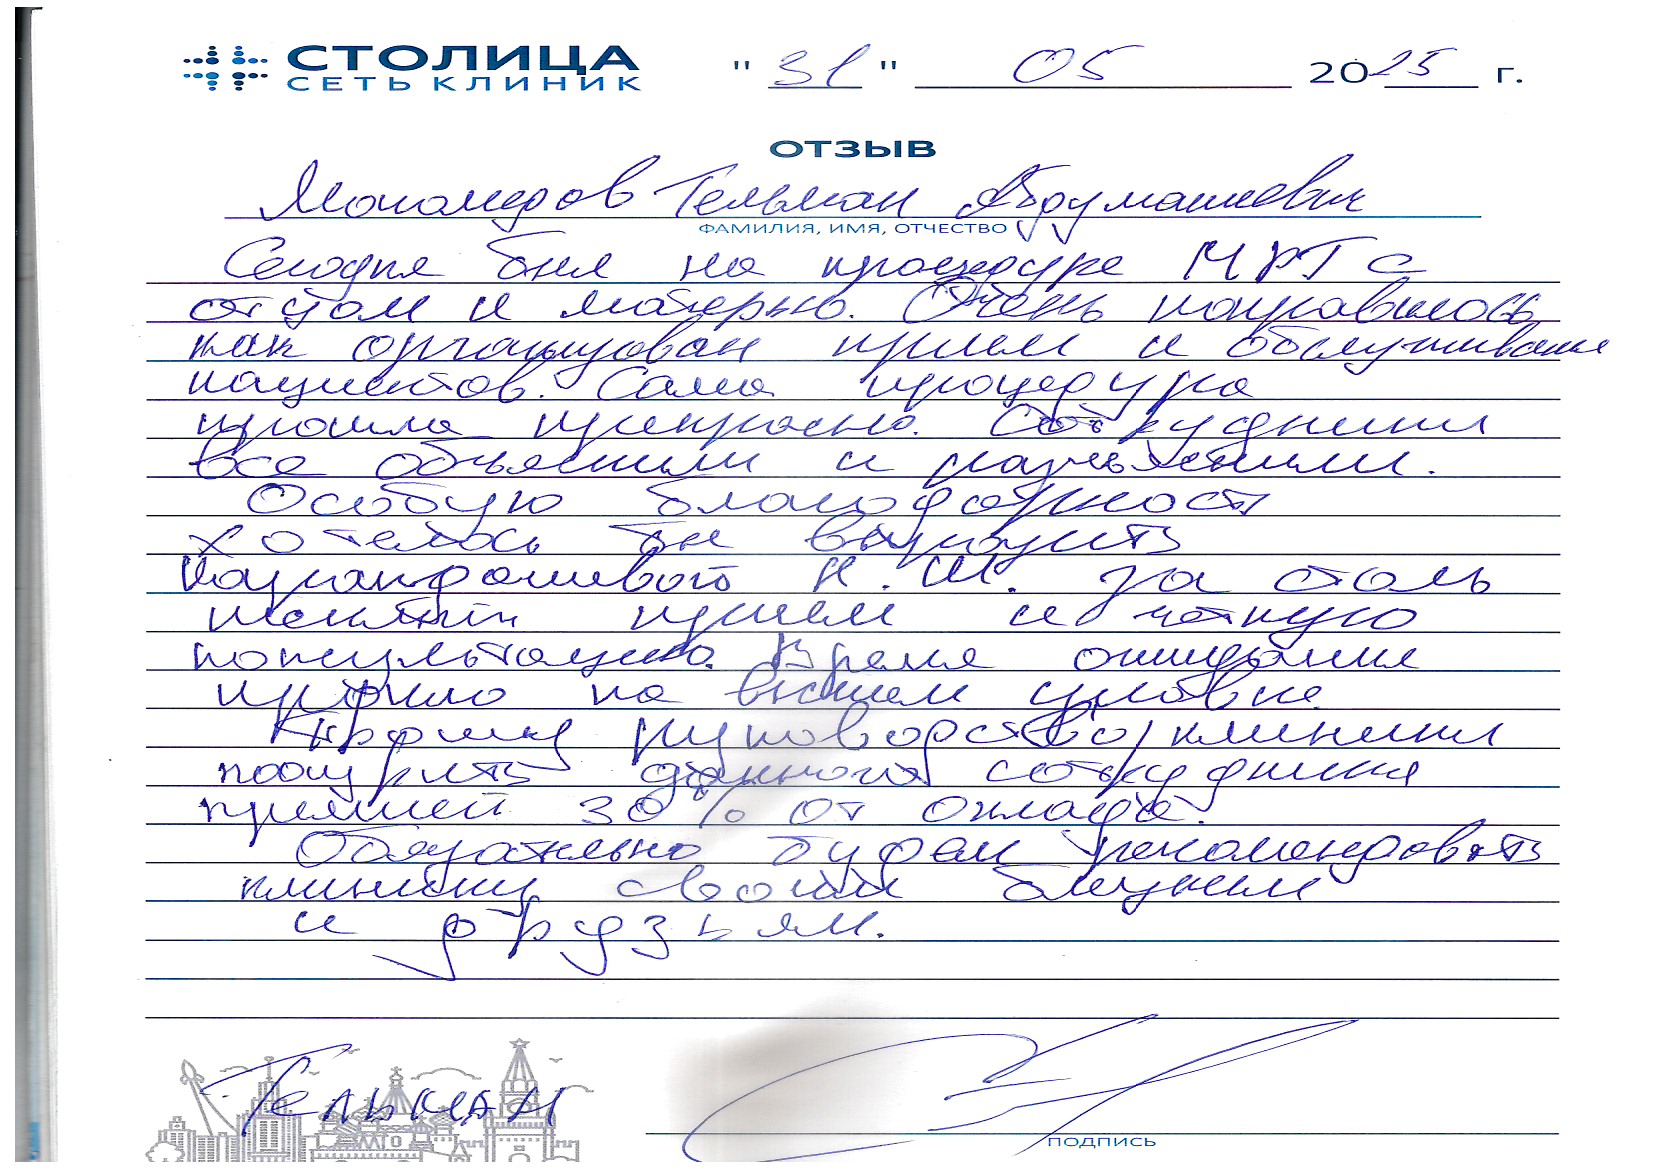 СТОЛИЦА
СЕТЬ КЛИНИК
"31" 05 2025 г.
ОТЗЫВ
Тельман
ФАМИЛИЯ, ИМЯ, ОТЧЕСТВО
Сегодня был на процедуре МРТ с
отцом и матерью. Очень понравилось
как организован прием и обслуживание
пациентов. Сама процедура
прошла прекрасно. Сотрудники
все объяснили и разъяснили.
Особую благодарность
хотелось бы выразить
Н. Ш. за столь
прием и четкую
консультацию. Время ожидания
прошло на высшем уровне.
Прошу руководство клиники
поощрить данного сотрудника
премией 30% от оклада.
Обязательно будем рекомендовать
клинику своим близким
и друзьям.
Тельман
ПОДПИСЬ